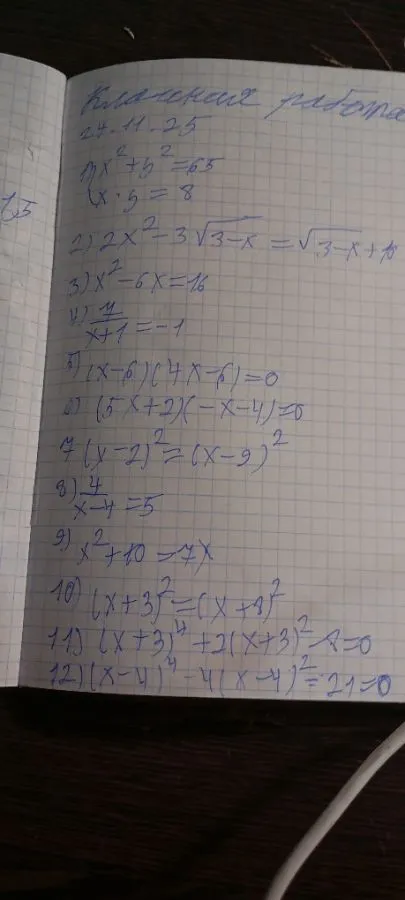 Классная работа
27.11.25
1) x²+y²=65
x·y=8
2) 2x²-3√3-x=√3-x+
3) x²-6x=16
4) 7/x+1=-1
5) (x-6)(4x-6)=0
6) (5x+2)(-x-4)=0
7 (x-2)²=(x-9)²
8) 4/x-4=5
9) x²+10=7x
10) (x+3)²=(x+8)²
11) (x+3)⁴+2(x+3)²-8=0
12) (x-4)⁴-4(x-4)²-21=0